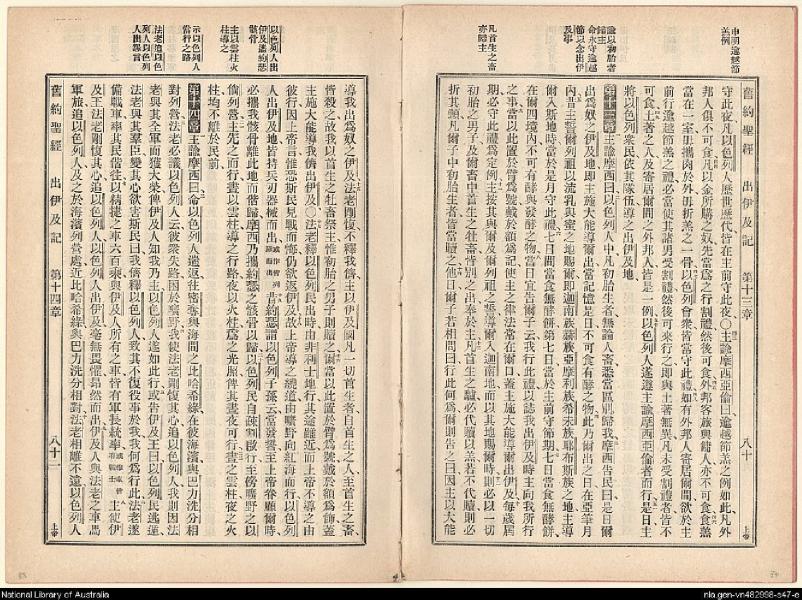 申明逾越節
羔例
諭以初胎者
歸主
命永守逾越
節以念出伊
及事
凡首生之畜
亦歸主
舊約聖經 出伊及記 第十三章 八十 上帝
守此夜凡以色列人歷世歷代皆在主前守此夜○主諭摩西亞倫曰逾越節羔之例如此凡外
邦人俱不可食凡以金所購之奴先當為之行割禮然後可食外邦客旅與傭人亦不可食食羔
當在一室毋攜肉於外毋折羔之一骨以色列會眾皆當守此禮如有外邦人寄居爾間欲於主
前行逾越節羔之禮必當使其諸男受割禮然後可來行之即與土著無異凡未受割禮者皆不
可食土著之人及寄居爾間之外邦人皆是一例以色列人遂遵主諭摩西亞倫者而行是日主
將以色列眾民依其隊伍導之出伊及地
第十三章主諭摩西曰以色列人中凡初胎生者無論人畜悉當區別歸我摩西告民曰是日爾
出為奴之伊及地即主施大能導爾出當記憶是日不可食有酵之物此乃爾出之日在亞筆月
內昔主誓爾列祖以流乳與蜜之地賜爾即迦南族赫族亞摩利族希未族耶布斯族之地主導
爾入斯地時當於是月守此禮七日間當食無酵餅第七日當於主前守節期七日當食無酵餅
在爾四境內不可有酵與發酵之物當日宜告爾子云我行此禮以誌我出伊及時主向我所行
之事當以此置於臂為號戴於額為記使主之律法常在爾口蓋主施大能導爾出伊及每歲屆
期必守此禮為定例主按其與爾及爾列祖之誓導爾入迦南地而以其地賜爾時則必以一切
初胎之男子及爾畜中首生之牡畜惟別之出奉於主凡首生之驢必代贖以羔若不代贖則必
折其頸凡爾子中初胎生者皆當贖之他日爾子若相問曰行此何為爾則告之曰因主以大能
以色列人出
伊及攜約瑟
骸骨
主以雲柱火
柱導之
示以色列人
當行之路
法老追以色
列人以色列
人出怨言
導我出為奴之伊及法老剛愎不釋我儕主以伊及國凡一切首生者自首生之人至首生之畜
皆殺之故我以首生之牡畜祭主惟初胎之男子則贖之爾當以此置於臂為號戴於額為飾蓋
主施大能導我儕出伊及○法老釋以色列民出時由非利士地行其途雖近而上帝不導之由
彼行因上帝言惟恐斯民見戰而悔仍欲返伊及故上帝導之繞道由曠野向紅海而行以色列
人出伊及地皆持兵刃器械而出昔約瑟謂以色列子孫云當發誓至上帝眷顧爾時
必攜我骸骨離此地而偕歸摩西乃攜約瑟之骸骨以歸以色列民自疎割啟行至傍曠野之以
倘列營主先之而行晝以雲柱導之行路夜以火柱為之光照俾其晝夜可行晝之雲柱夜之火
柱均不離於民前
第十四章主諭摩西曰命以色列人遄返往密奪與海間之比哈希綠在彼海濱與巴力洗分相
對列營法老必議以色列人云彼眾失路困於曠野我使法老剛愎其心追以色列人我則因法
老與其全軍而獲大榮俾伊及人知我乃主以色列人遂如此行或告伊及王曰以色列民逃遁
法老與其羣臣變其心欲害斯民曰我儕釋以色列人致其不復役事於我我何為行此法老遂
備戰車率其民偕往以精捷之車六百乘與伊及人所有之車皆有軍長統率主使伊
及王法老剛愎其心追以色列人以色列人出伊及毫無畏懼昂然而出伊及人與法老之車馬
軍旅追以色列人及之於海濱列營處近比哈希綠與巴力洗分相對法老相離不遠以色列人
舊約聖經 出伊及記 第十四章 八十一 上帝
National Library of Australia
nla.gen-vn482998-s47-e